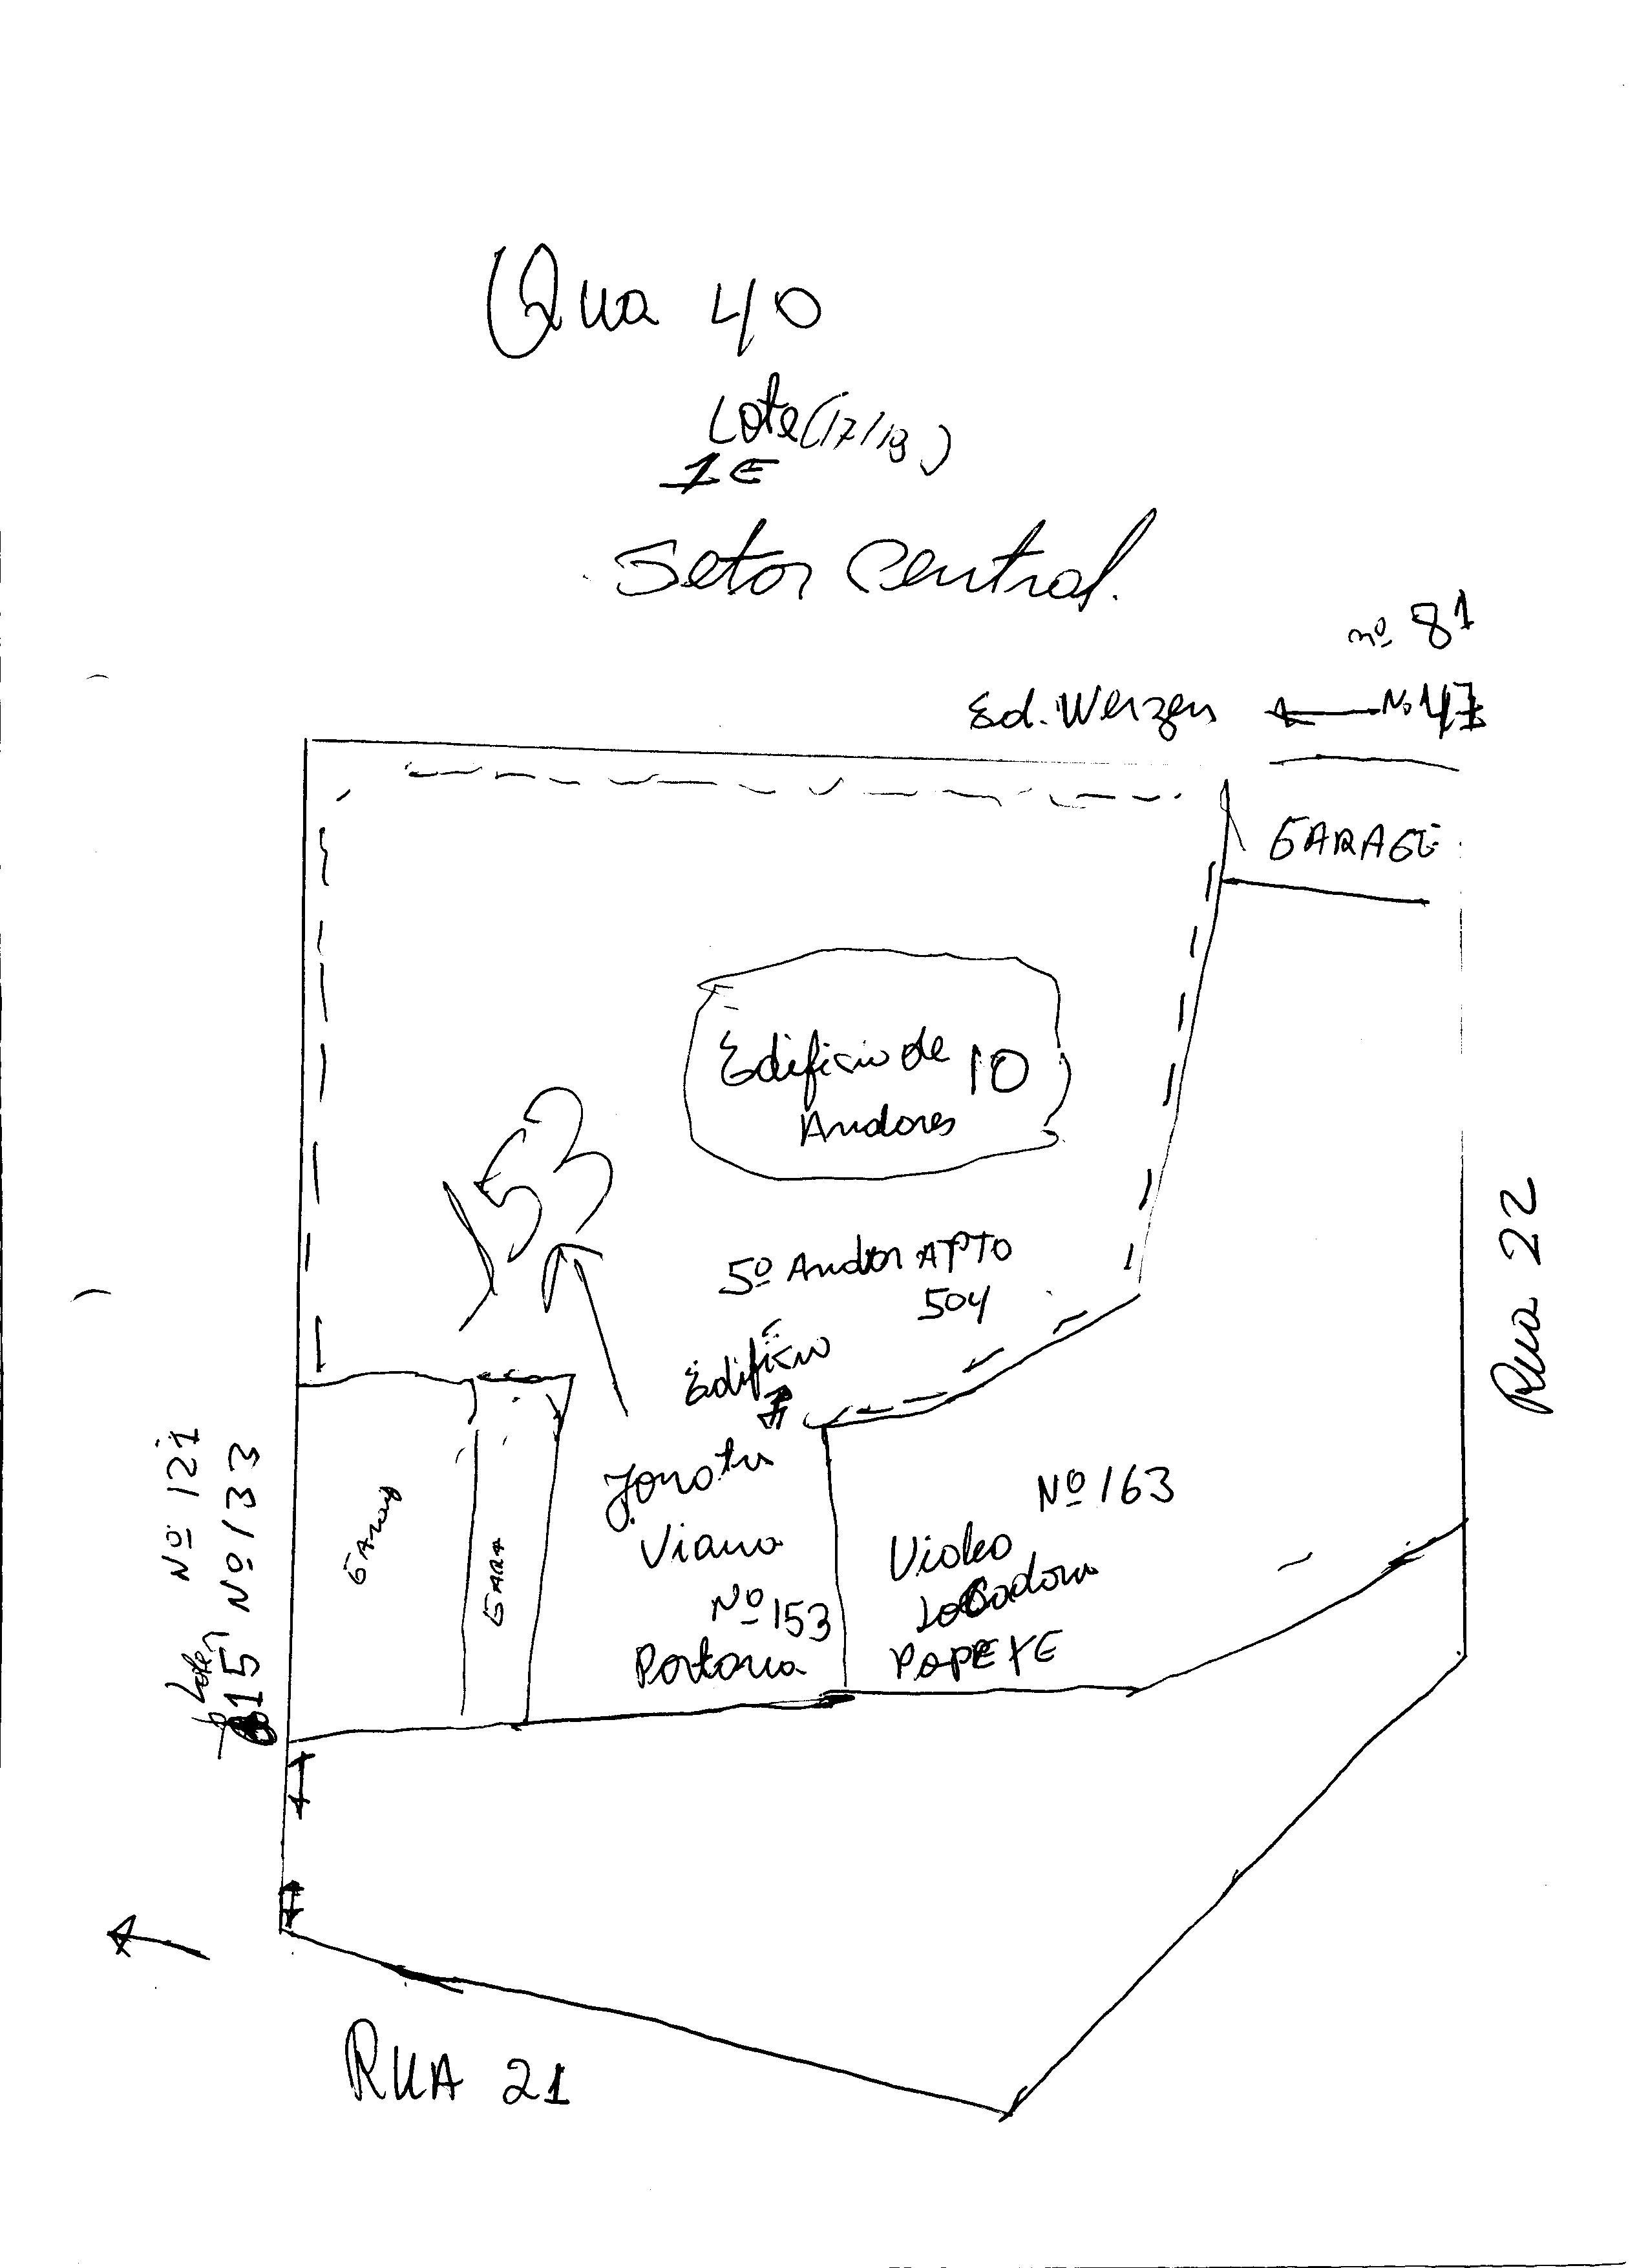 Qua 40
Lote (17/19)
1E
Setor Central.
nº 81
Ed. Werzen
No 47
GARAGE
Edificio de 10
Andores
153
5º Andor APTO
504
Edificio
Viana
Nº 153
Portaria
Nº 163
Video
Locadora
POPEYE
GARA
Nº 121
Nº 133
Lote
15
Rua 22
RUA 21